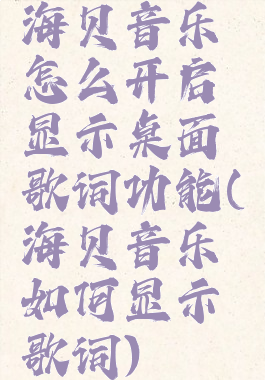 海贝音乐
怎么开启
显示桌面
歌词功能(
海贝音乐
如何显示
歌词)